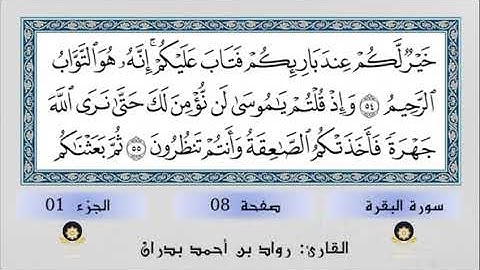 خَيْرٌ لَّكُمْ عِندَ بَارِئِكُمْ فَتَابَ عَلَيْكُمْ ۚ إِنَّهُۥ هُوَ ٱلتَّوَّابُ
ٱلرَّحِيمُ ٥٤ وَإِذْ قُلْتُمْ يَٰمُوسَىٰ لَن نُّؤْمِنَ لَكَ حَتَّىٰ نَرَى ٱللَّهَ
جَهْرَةً فَأَخَذَتْكُمُ ٱلصَّٰعِقَةُ وَأَنتُمْ تَنظُرُونَ ٥٥ ثُمَّ بَعَثْنَٰكُم
سورة البقرة صفحة 08 الجزء 01
القارئ: رواد بن أحمد بدران